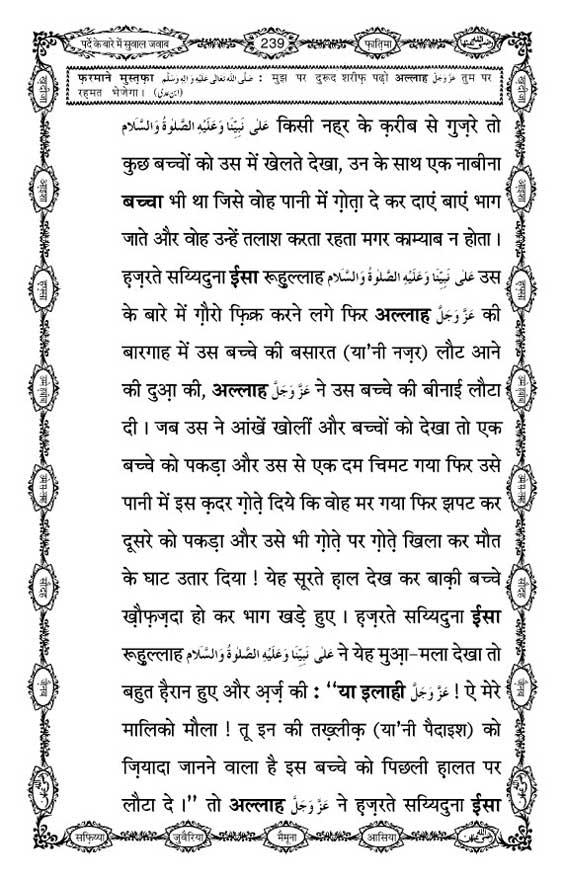 पर्दे के बारे में सुवाल जवाब
239
फ़ातिमा
फ़रमाने मुस्तफ़ा صَلَّى اللهُ تَعَالٰى عَلَيْهِ وَاٰلِهٖ وَسَلَّم : मुझ पर दुरूद शरीफ़ पढ़ो अल्लाह عَزَّوَجَلَّ तुम पर
रहमत भेजेगा। (ابن عدى)
عَلٰى نَبِيِّنَا وَعَلَيْهِ الصَّلٰوةُ وَالسَّلَام किसी नह्र के क़रीब से गुज़रे तो
कुछ बच्चों को उस में खेलते देखा, उन के साथ एक नाबीना
बच्चा भी था जिसे वोह पानी में ग़ोता दे कर दाएं बाएं भाग
जाते और वोह उन्हें तलाश करता रहता मगर काम्याब न होता।
हज़रते सय्यिदुना ईसा रूहुल्लाह عَلٰى نَبِيِّنَا وَعَلَيْهِ الصَّلٰوةُ وَالسَّلَام उस
के बारे में ग़ौरो फ़िक्र करने लगे फिर अल्लाह عَزَّوَجَلَّ की
बारगाह में उस बच्चे की बसारत (या'नी नज़र) लौट आने
की दुआ़ की, अल्लाह عَزَّوَجَلَّ ने उस बच्चे की बीनाई लौटा
दी। जब उस ने आंखें खोलीं और बच्चों को देखा तो एक
बच्चे को पकड़ा और उस से एक दम चिमट गया फिर उसे
पानी में इस क़दर ग़ोते़ दिये कि वोह मर गया फिर झपट कर
दूसरे को पकड़ा और उसे भी ग़ोते़ पर ग़ोते़ खिला कर मौत
के घाट उतार दिया ! येह सूरते हाल देख कर बाक़ी बच्चे
ख़ौफ़ज़दा हो कर भाग खड़े हुए। हज़रते सय्यिदुना ईसा
रूहुल्लाह عَلٰى نَبِيِّنَا وَعَلَيْهِ الصَّلٰوةُ وَالسَّلَام ने येह मुआ़-मला देखा तो
बहुत हैरान हुए और अ़र्ज़ की : “या इलाही عَزَّوَجَلَّ ! ऐ मेरे
मालिको मौला ! तू इन की तख़्लीक़ (या'नी पैदाइश) को
ज़ियादा जानने वाला है इस बच्चे को पिछली हालत पर
लौटा दे।” तो अल्लाह عَزَّوَجَلَّ ने हज़रते सय्यिदुना ईसा
सफ़िय्या
जुवैरिया
मैमूना
आसिया